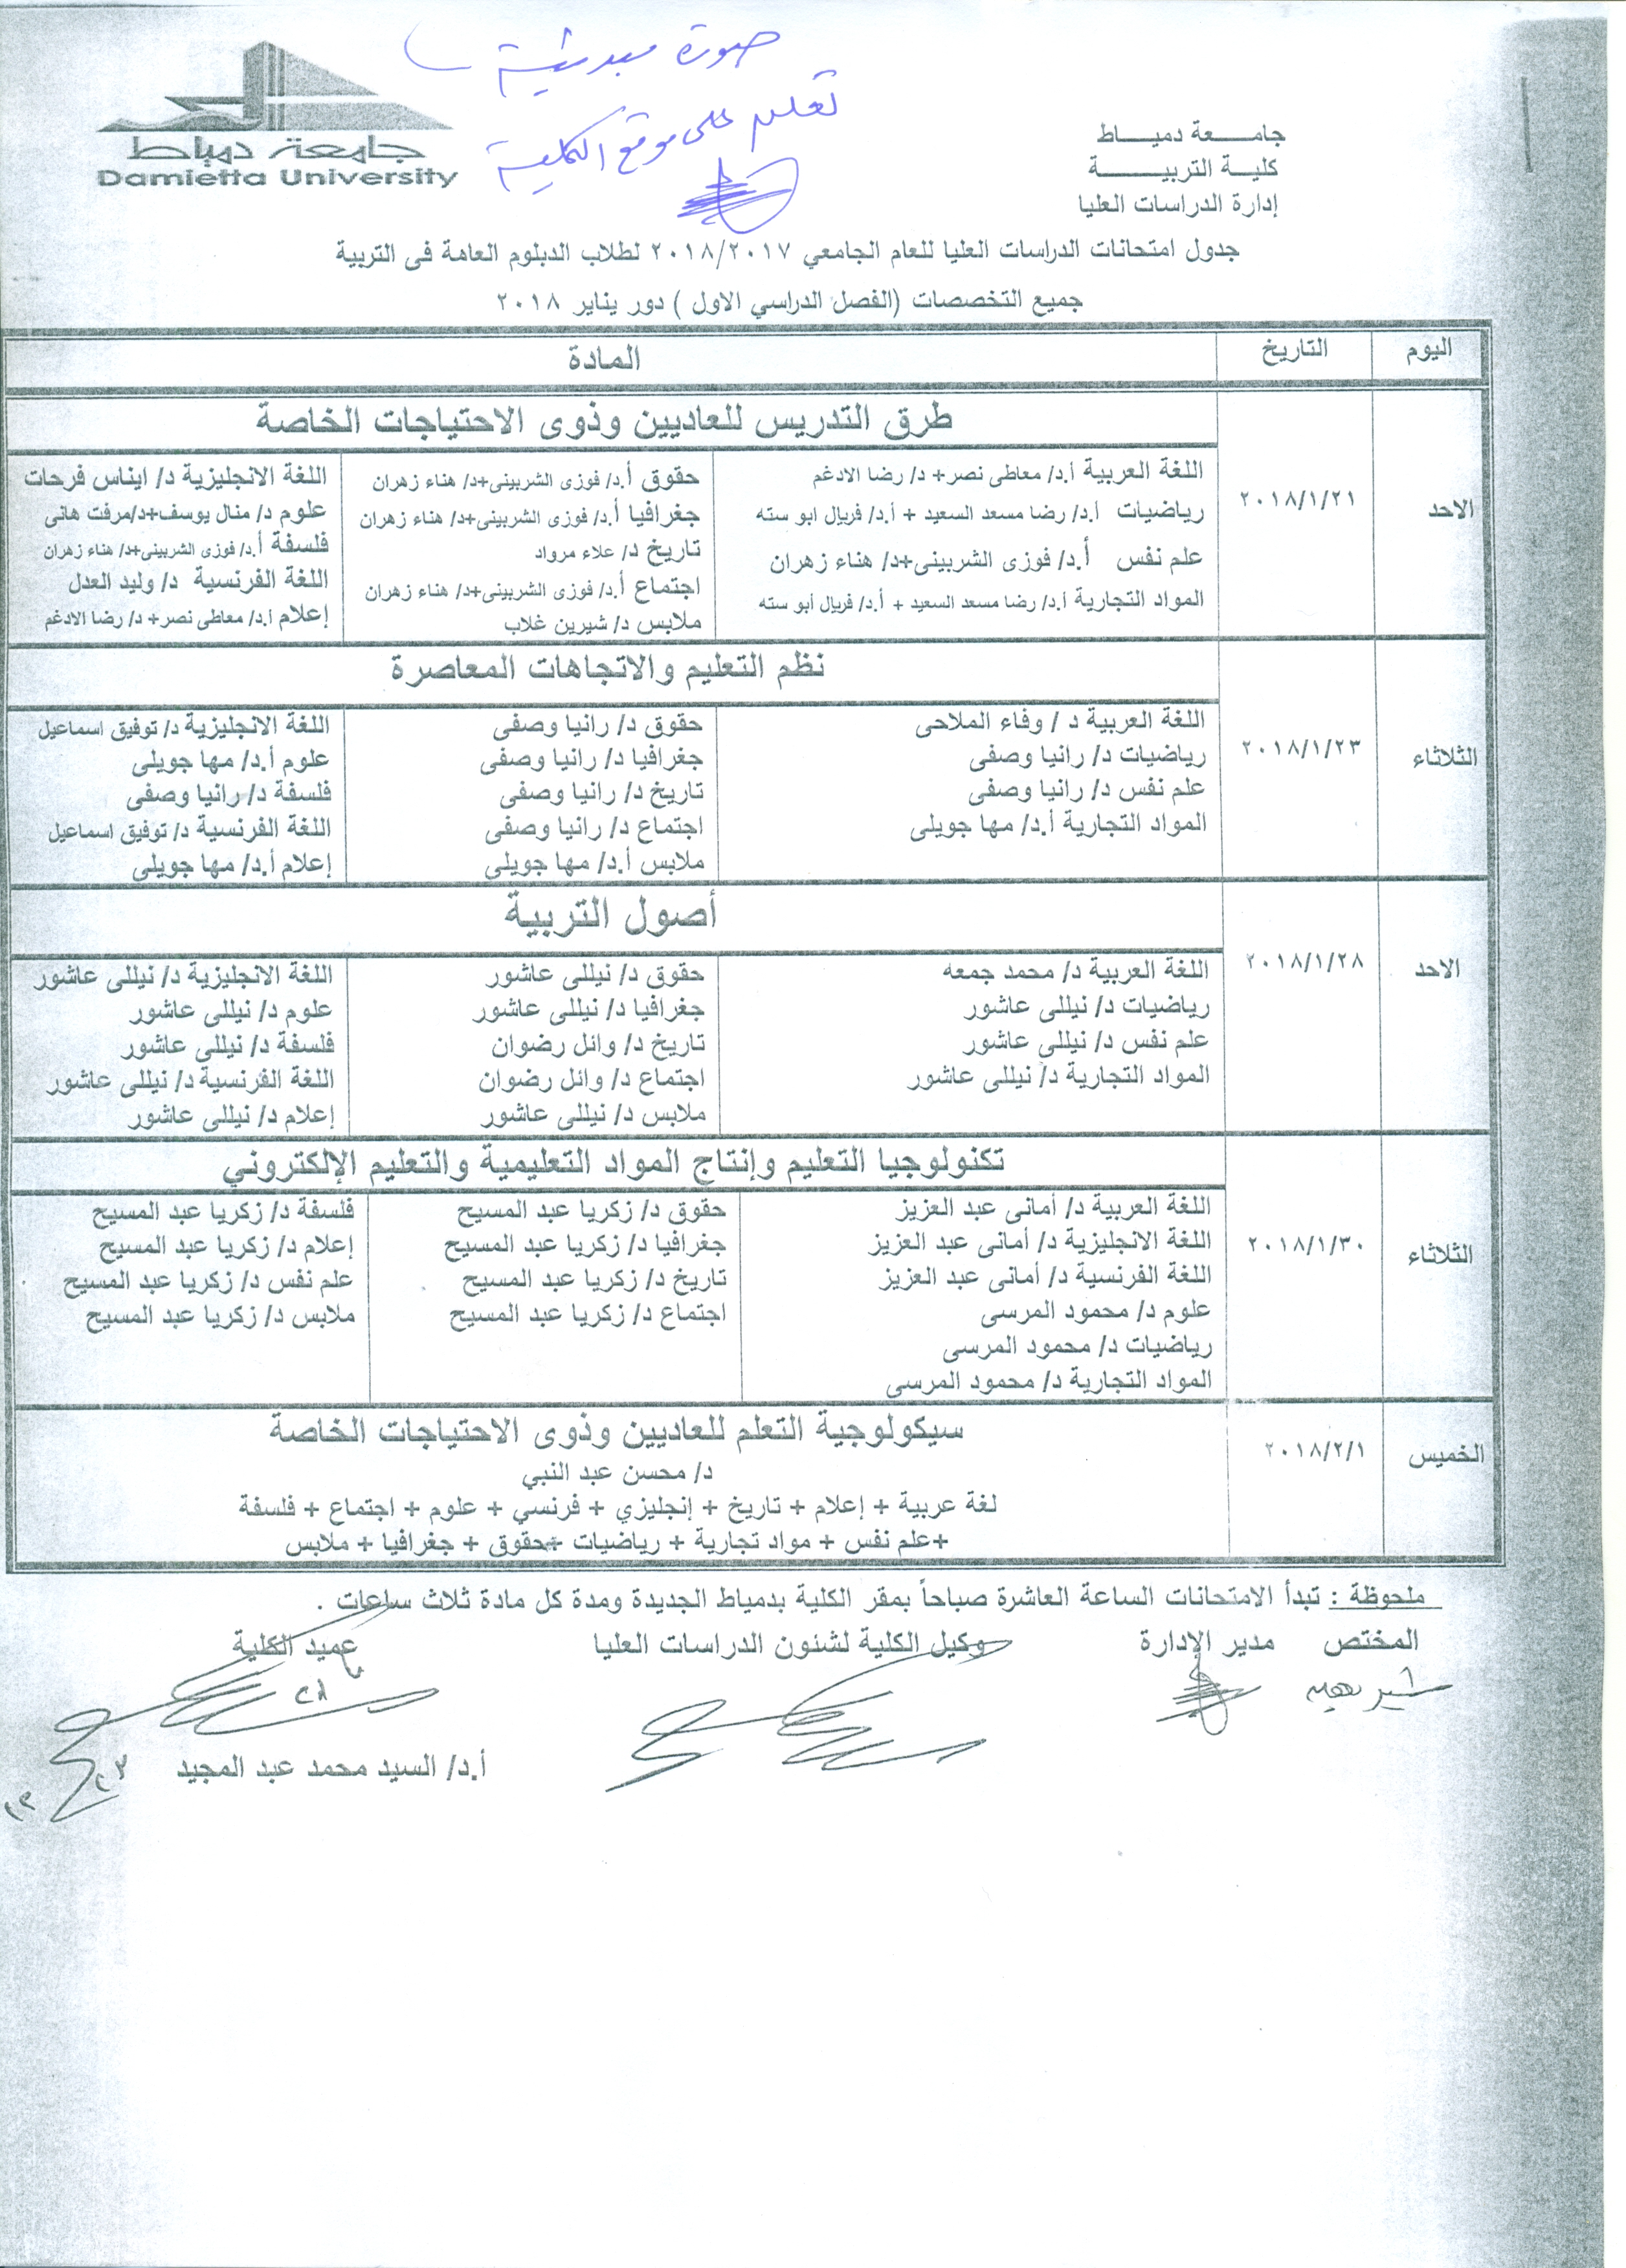 صورة مبدئية
تعلن على موقع الكلية
جامعة دمياط
Damietta University
جامعـــة دميـــاط
كليـــة التربيـــــة
إدارة الدراسات العليا
جدول امتحانات الدراسات العليا للعام الجامعي ٢٠١٨/٢٠١٧ لطلاب الدبلوم العامة فى التربية
جميع التخصصات (الفصل الدراسي الاول ) دور يناير ٢٠١٨
اليوم التاريخ المادة
الاحد ٢٠١٨/١/٢١
طرق التدريس للعاديين وذوى الاحتياجات الخاصة
اللغة العربية أ.د/ معاطى نصر+ د/ رضا الادغم
رياضيات أ.د/ رضا مسعد السعيد + أ.د/ فريال ابو سته
علم نفس أ.د/ فوزى الشربينى+د/ هناء زهران
المواد التجارية أ.د/ رضا مسعد السعيد + أ.د/ فريال أبو سته
حقوق أ.د/ فوزى الشربينى+د/ هناء زهران
جغرافيا أ.د/ فوزى الشربينى+د/ هناء زهران
تاريخ د/ علاء مرواد
اجتماع أ.د/ فوزى الشربينى+د/ هناء زهران
ملابس د/ شيرين غلاب
اللغة الانجليزية د/ ايناس فرحات
علوم د/ منال يوسف+د/مرفت هانى
فلسفة أ.د/ فوزى الشربينى+د/ هناء زهران
اللغة الفرنسية د/ وليد العدل
إعلام أ.د/ معاطى نصر+ د/ رضا الادغم
الثلاثاء ٢٠١٨/١/٢٣
نظم التعليم والاتجاهات المعاصرة
اللغة العربية د / وفاء الملاحى
رياضيات د/ رانيا وصفى
علم نفس د/ رانيا وصفى
المواد التجارية أ.د/ مها جويلى
حقوق د/ رانيا وصفى
جغرافيا د/ رانيا وصفى
تاريخ د/ رانيا وصفى
اجتماع د/ رانيا وصفى
ملابس أ.د/ مها جويلى
اللغة الانجليزية د/ توفيق اسماعيل
علوم أ.د/ مها جويلى
فلسفة د/ رانيا وصفى
اللغة الفرنسية د/ توفيق اسماعيل
إعلام أ.د/ مها جويلى
الاحد ٢٠١٨/١/٢٨
أصول التربية
اللغة العربية د/ محمد جمعه
رياضيات د/ نيللى عاشور
علم نفس د/ نيللى عاشور
المواد التجارية د/ نيللى عاشور
حقوق د/ نيللى عاشور
جغرافيا د/ نيللى عاشور
تاريخ د/ وائل رضوان
اجتماع د/ وائل رضوان
ملابس د/ نيللى عاشور
اللغة الانجليزية د/ نيللى عاشور
علوم د/ نيللى عاشور
فلسفة د/ نيللى عاشور
اللغة الفرنسية د/ نيللى عاشور
إعلام د/ نيللى عاشور
الثلاثاء ٢٠١٨/١/٣٠
تكنولوجيا التعليم وإنتاج المواد التعليمية والتعليم الإلكتروني
اللغة العربية د/ أمانى عبد العزيز
اللغة الانجليزية د/ أمانى عبد العزيز
اللغة الفرنسية د/ أمانى عبد العزيز
علوم د/ محمود المرسى
رياضيات د/ محمود المرسى
المواد التجارية د/ محمود المرسى
حقوق د/ زكريا عبد المسيح
جغرافيا د/ زكريا عبد المسيح
تاريخ د/ زكريا عبد المسيح
اجتماع د/ زكريا عبد المسيح
فلسفة د/ زكريا عبد المسيح
إعلام د/ زكريا عبد المسيح
علم نفس د/ زكريا عبد المسيح
ملابس د/ زكريا عبد المسيح
الخميس ٢٠١٨/٢/١
سيكولوجية التعلم للعاديين وذوى الاحتياجات الخاصة
د/ محسن عبد النبي
لغة عربية + إعلام + تاريخ + إنجليزي + فرنسي + علوم + اجتماع + فلسفة
+علم نفس + مواد تجارية + رياضيات +حقوق + جغرافيا + ملابس
ملحوظة : تبدأ الامتحانات الساعة العاشرة صباحاً بمقر الكلية بدمياط الجديدة ومدة كل مادة ثلاث ساعات .
المختص مدير الإدارة وكيل الكلية لشئون الدراسات العليا عميد الكلية
أ.د/ السيد محمد عبد المجيد